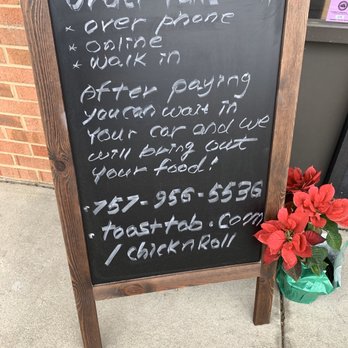 * over phone
* online
* walk in
After paying
you can wait in
your car and we
will bring out
your food!
. 757-956-5536
. toasttab.com
/chicknRoll